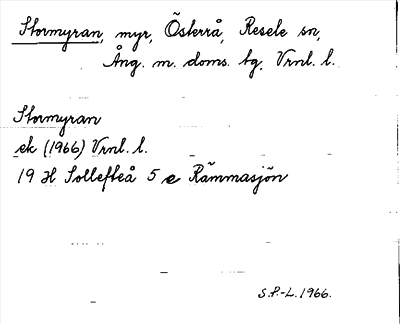 Stormyran, myr, Österrå, Resele sn,
Ång. m. doms. tg. Vrnl. l.
Stormyran
ek (1966) Vrnl. l.
19 H Sollefteå 5 e Rämmasjön
S.P.-L. 1966.